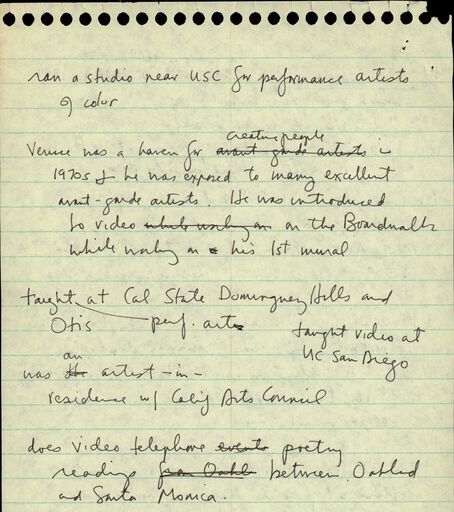 ran a studio near USC for performance artists
of color
creative people
Venice was a haven for avant garde artists in
1970s & he was exposed to many excellent
avant-garde artists. He was introduced
to video while working on on the Boardwalk
while working on his 1st mural
taught at Cal State Dominguez Hills and
Otis perf. art
taught video at
UC San Diego
an
was artist-in-
residence w/ Calif Arts Council
does video telephone events poetry
readings between Oakland
and Santa Monica.